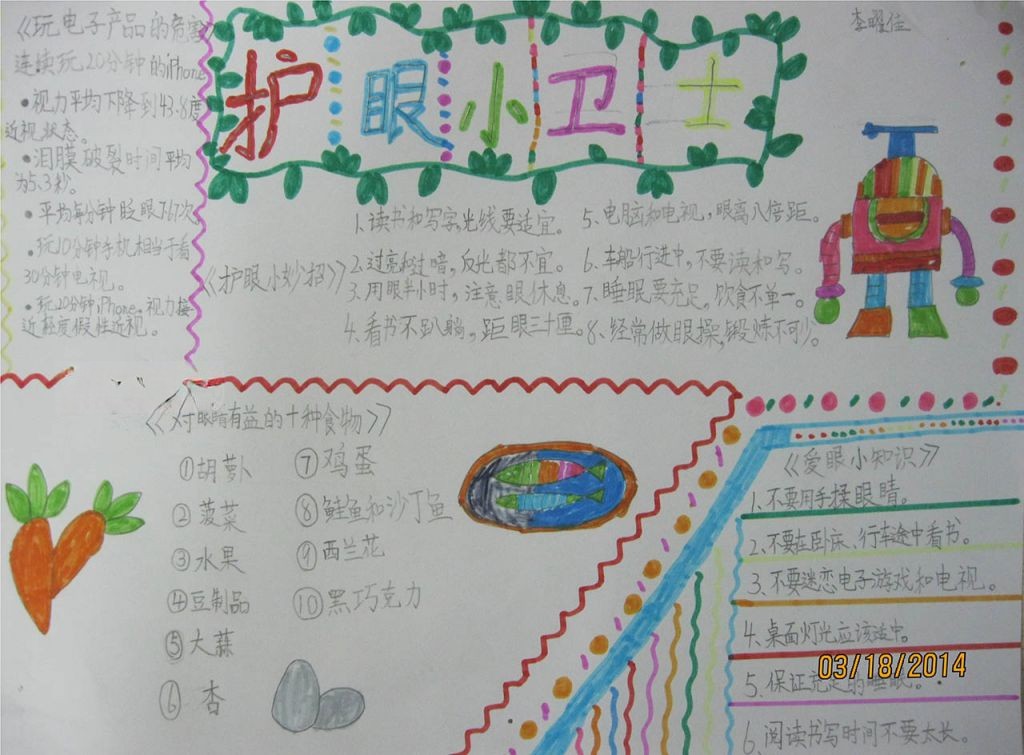 护眼小卫士
李曜住
《玩电子产品的危害》
连续玩20分钟的iPhone
•视力平均下降到43.8度
近视状态。
•泪膜破裂时间平均
为5.3秒。
•平均每分钟眨眼 次
•玩10分钟手机相当于看
30分钟电视。
•玩20分钟iPhone,视力接
近轻度假性近视。
《护眼小妙招》
1.读书和写字,光线要适宜。
2.过亮和过暗,反光都不宜。
3.用眼半小时,注意眼休息。
4.看书不趴躺,距眼三十厘。
5.电脑和电视,眼离八倍距。
6.车船行进中,不要读和写。
7.睡眠要充足,饮食不单一。
8.经常做眼操,锻炼不可少。
《对眼睛有益的十种食物》
①胡萝卜
②菠菜
③水果
④豆制品
⑤大蒜
⑥杏
⑦鸡蛋
⑧鲑鱼和沙丁鱼
⑨西兰花
⑩黑巧克力
《爱眼小知识》
1.不要用手揉眼睛。
2.不要在卧床、行车途中看书。
3.不要迷恋电子游戏和电视。
4.桌面灯光应该适中。
5.保证充足的睡眠。
6.阅读书写时间不要太长。
03/18/2014